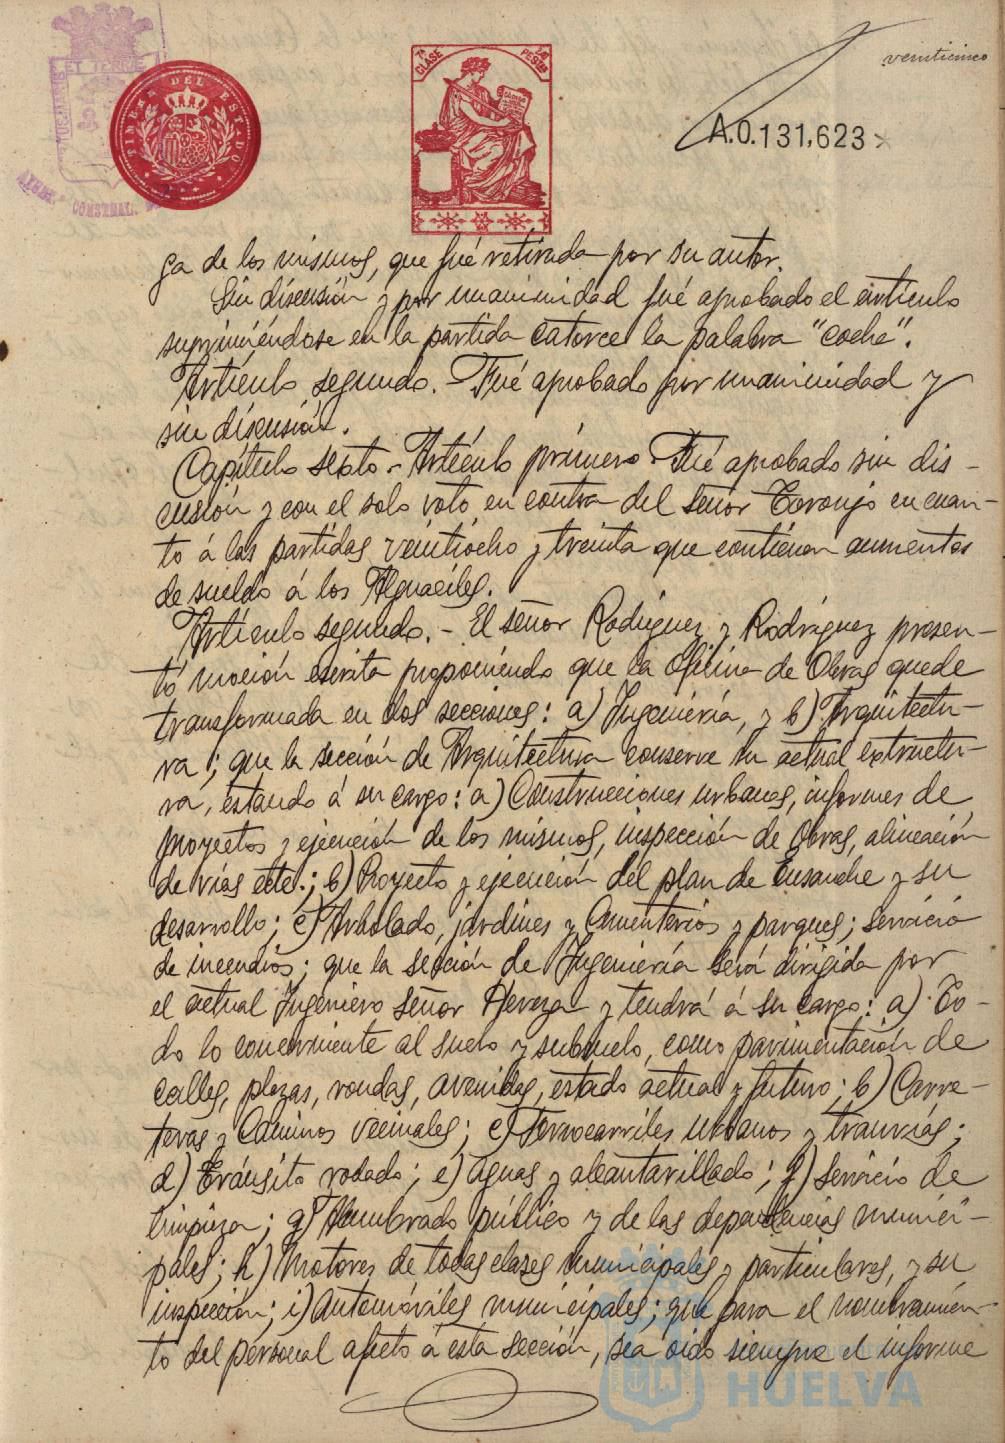 veinticinco
7ª CLASE
PESETAS
TIMBRE DEL ESTADO
A.0.131,623
ga de los mismos, que fué retirada por su autor.
Sin discusión y por unanimidad fué aprobado el artículo
suprimiéndose en la partida catorce la palabra "coche".
Artículo segundo. - Fué aprobado por unanimidad y
sin discusión.
Capítulo sexto - Artículo primero - Fué aprobado sin dis-
cusión y con el solo voto en contra del señor Toronjo en cuan-
to á las partidas veintiocho y treinta que contienen aumentos
de sueldo á los Alguaciles.
Artículo segundo. - El señor Rodríguez y Rodríguez presen-
tó moción escrita proponiendo que la Oficina de Obras quede
transformada en dos secciones: a) Ingeniería, y b) Arquitectu-
ra; que la sección de Arquitectura conserve su actual estructu-
ra, estando á su cargo: a) Construcciones urbanas, informes de
proyectos y ejecución de los mismos, inspección de Obras, alineación
de vías etc.; b) Proyecto y ejecución del plan de Ensanche y su
desarrollo; c) Arbolado, jardines y Cementerios y parques; servicio
de incendios; que la sección de Ingeniería será dirigida por
el actual Ingeniero señor y tendrá á su cargo: a) To-
do lo concerniente al suelo y subsuelo, como pavimentación de
calles, plazas, rondas, avenidas, estado actual y futuro; b) Carre-
teras y Caminos vecinales; c) Ferrocarriles urbanos y tranvías;
d) Tránsito rodado; e) aguas y alcantarillado; f) Servicio de
limpieza; g) Alumbrado público y de las dependencias munici-
pales; h) Motores de todas clases municipales y particulares, y su
inspección; i) Automóviles municipales; que para el nombramien-
to del personal afecto á esta sección, sea oido siempre el informe
HUELVA